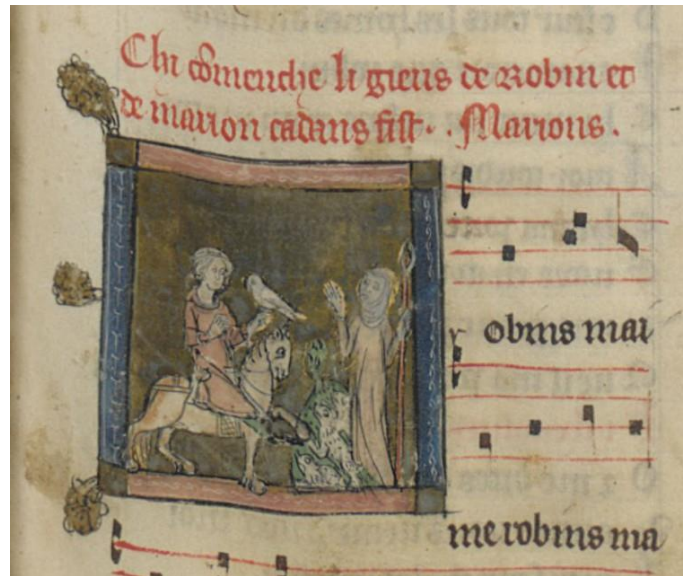 Chi cõmenche li gieus de robin et
de marion cadans fist. . Marions.
obins mai
me robins ma